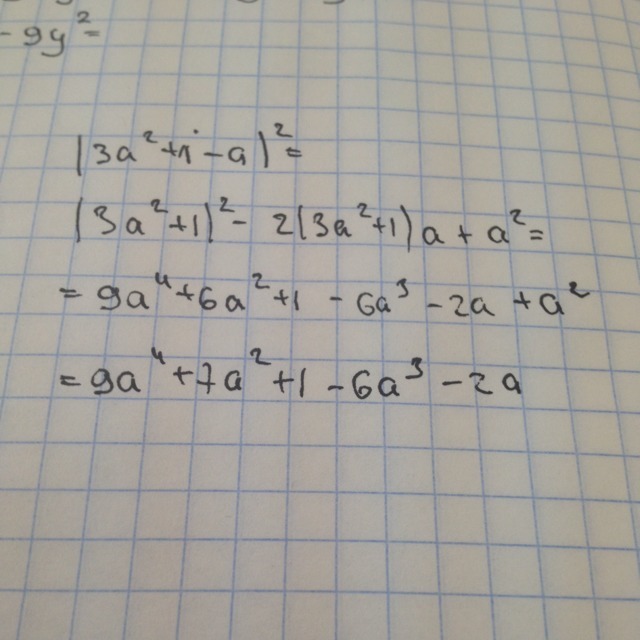 -9y²=
(3a²+1-a)²=
(3a²+1)²- 2(3a²+1)a+a²=
=9a⁴+6a²+1-6a³-2a+a²
=9a⁴+7a²+1-6a³-2a